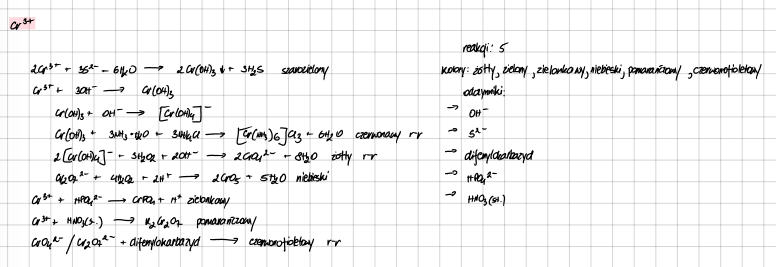 Cr³⁺
2Cr³⁺ + 3S²⁻ – 6H₂O → 2Cr(OH)₃↓ + 3H₂S szarozielony
Cr³⁺ + 3OH⁻ → Cr(OH)₃
Cr(OH)₃ + OH⁻ → [Cr(OH)₄]⁻
Cr(OH)₃ + 3NH₃·H₂O + 3NH₄Cl → [Cr(NH₃)₆]Cl₃ + 6H₂O czerwonawy rr
2[Cr(OH)₄]⁻ + 3H₂O₂ + 2OH⁻ → 2CrO₄²⁻ + 8H₂O żółty rr
Cr₂O₇²⁻ + 4H₂O₂ + 2H⁺ → 2CrO₅ + 5H₂O niebieski
Cr³⁺ + HPO₄²⁻ → CrPO₄ + H⁺ zielonkawy
Cr³⁺ + HNO₃(st.) → H₂Cr₂O₇ pomarańczowy
CrO₄²⁻ / Cr₂O₇²⁻ + difenylokarbazyd → czerwonofioletowy rr
reakcji: 5
kolory: żółty, zielony, zielonkawy, niebieski, pomarańczowy, czerwonofioletowy
odczynniki:
→ OH⁻
→ S²⁻
→ difenylokarbazyd
→ HPO₄²⁻
→ HNO₃(st.)